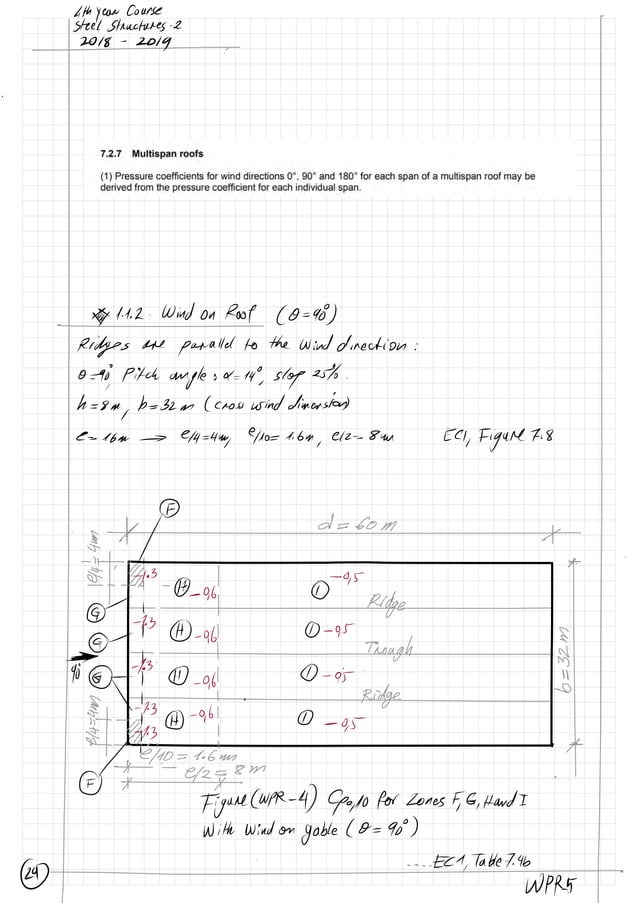 4th year Course
Steel Structures-2
2018 - 2019
7.2.7 Multispan roofs
(1) Pressure coefficients for wind directions 0°, 90° and 180° for each span of a multispan roof may be
derived from the pressure coefficient for each individual span.
1.1.2. Wind on Roof (θ=90°)
Ridges are parallel to the wind direction:
θ=90° Pitch angle: α=14°, slop 25%.
h=8m, b=32m (cross wind dimension)
e=16m → e/4=4m, e/10=1.6m, e/2=8m EC1, Figure 7.8
F
d=60m
e/4=4m
-1.3 H -0,6 I -0,5
Ridge
G
-1.3 H -0,6 I -0,5
G
Trough
b=32m
90°
G
-1.3 H -0,6 I -0,5
Ridge
-1.3 H -0,6 I -0,5
e/4=4m
-1.3
e/10=1.6m
F
e/2=8m
Figure (WPR-4) Cpe,10 for Zones F, G, H and I
With Wind on gable (θ=90°)
....EC1, Table 7.4b
29
WPR5